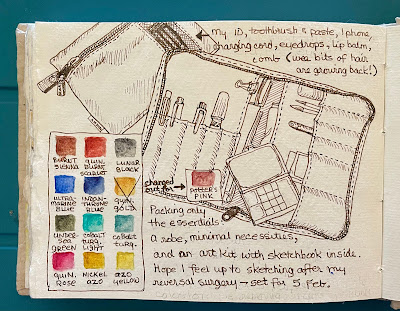 my ID, toothbrush & paste, Iphone,
charging cord, eyedrops, lip balm,
comb (wee bits of hair
are growing back!)
BURNT
SIENNA
QUIN.
BURNT
SCARLET
LUNAR
BLACK
ULTRA-
MARINE
BLUE
INDAN-
THRONE
BLUE
QUIN.
GOLD
UNDER-
SEA
GREEN
COBALT
TURQ.
LIGHT
cobalt
turq.
QUIN.
ROSE
NICKEL
AZO
AZO
YELLOW
changed
out for
POTTER'S
PINK
Packing only
the essentials
a robe, minimal necessities,
and an art kit with sketchbook inside.
Hope I feel up to sketching after my
reversal surgery → set for 5 Feb.